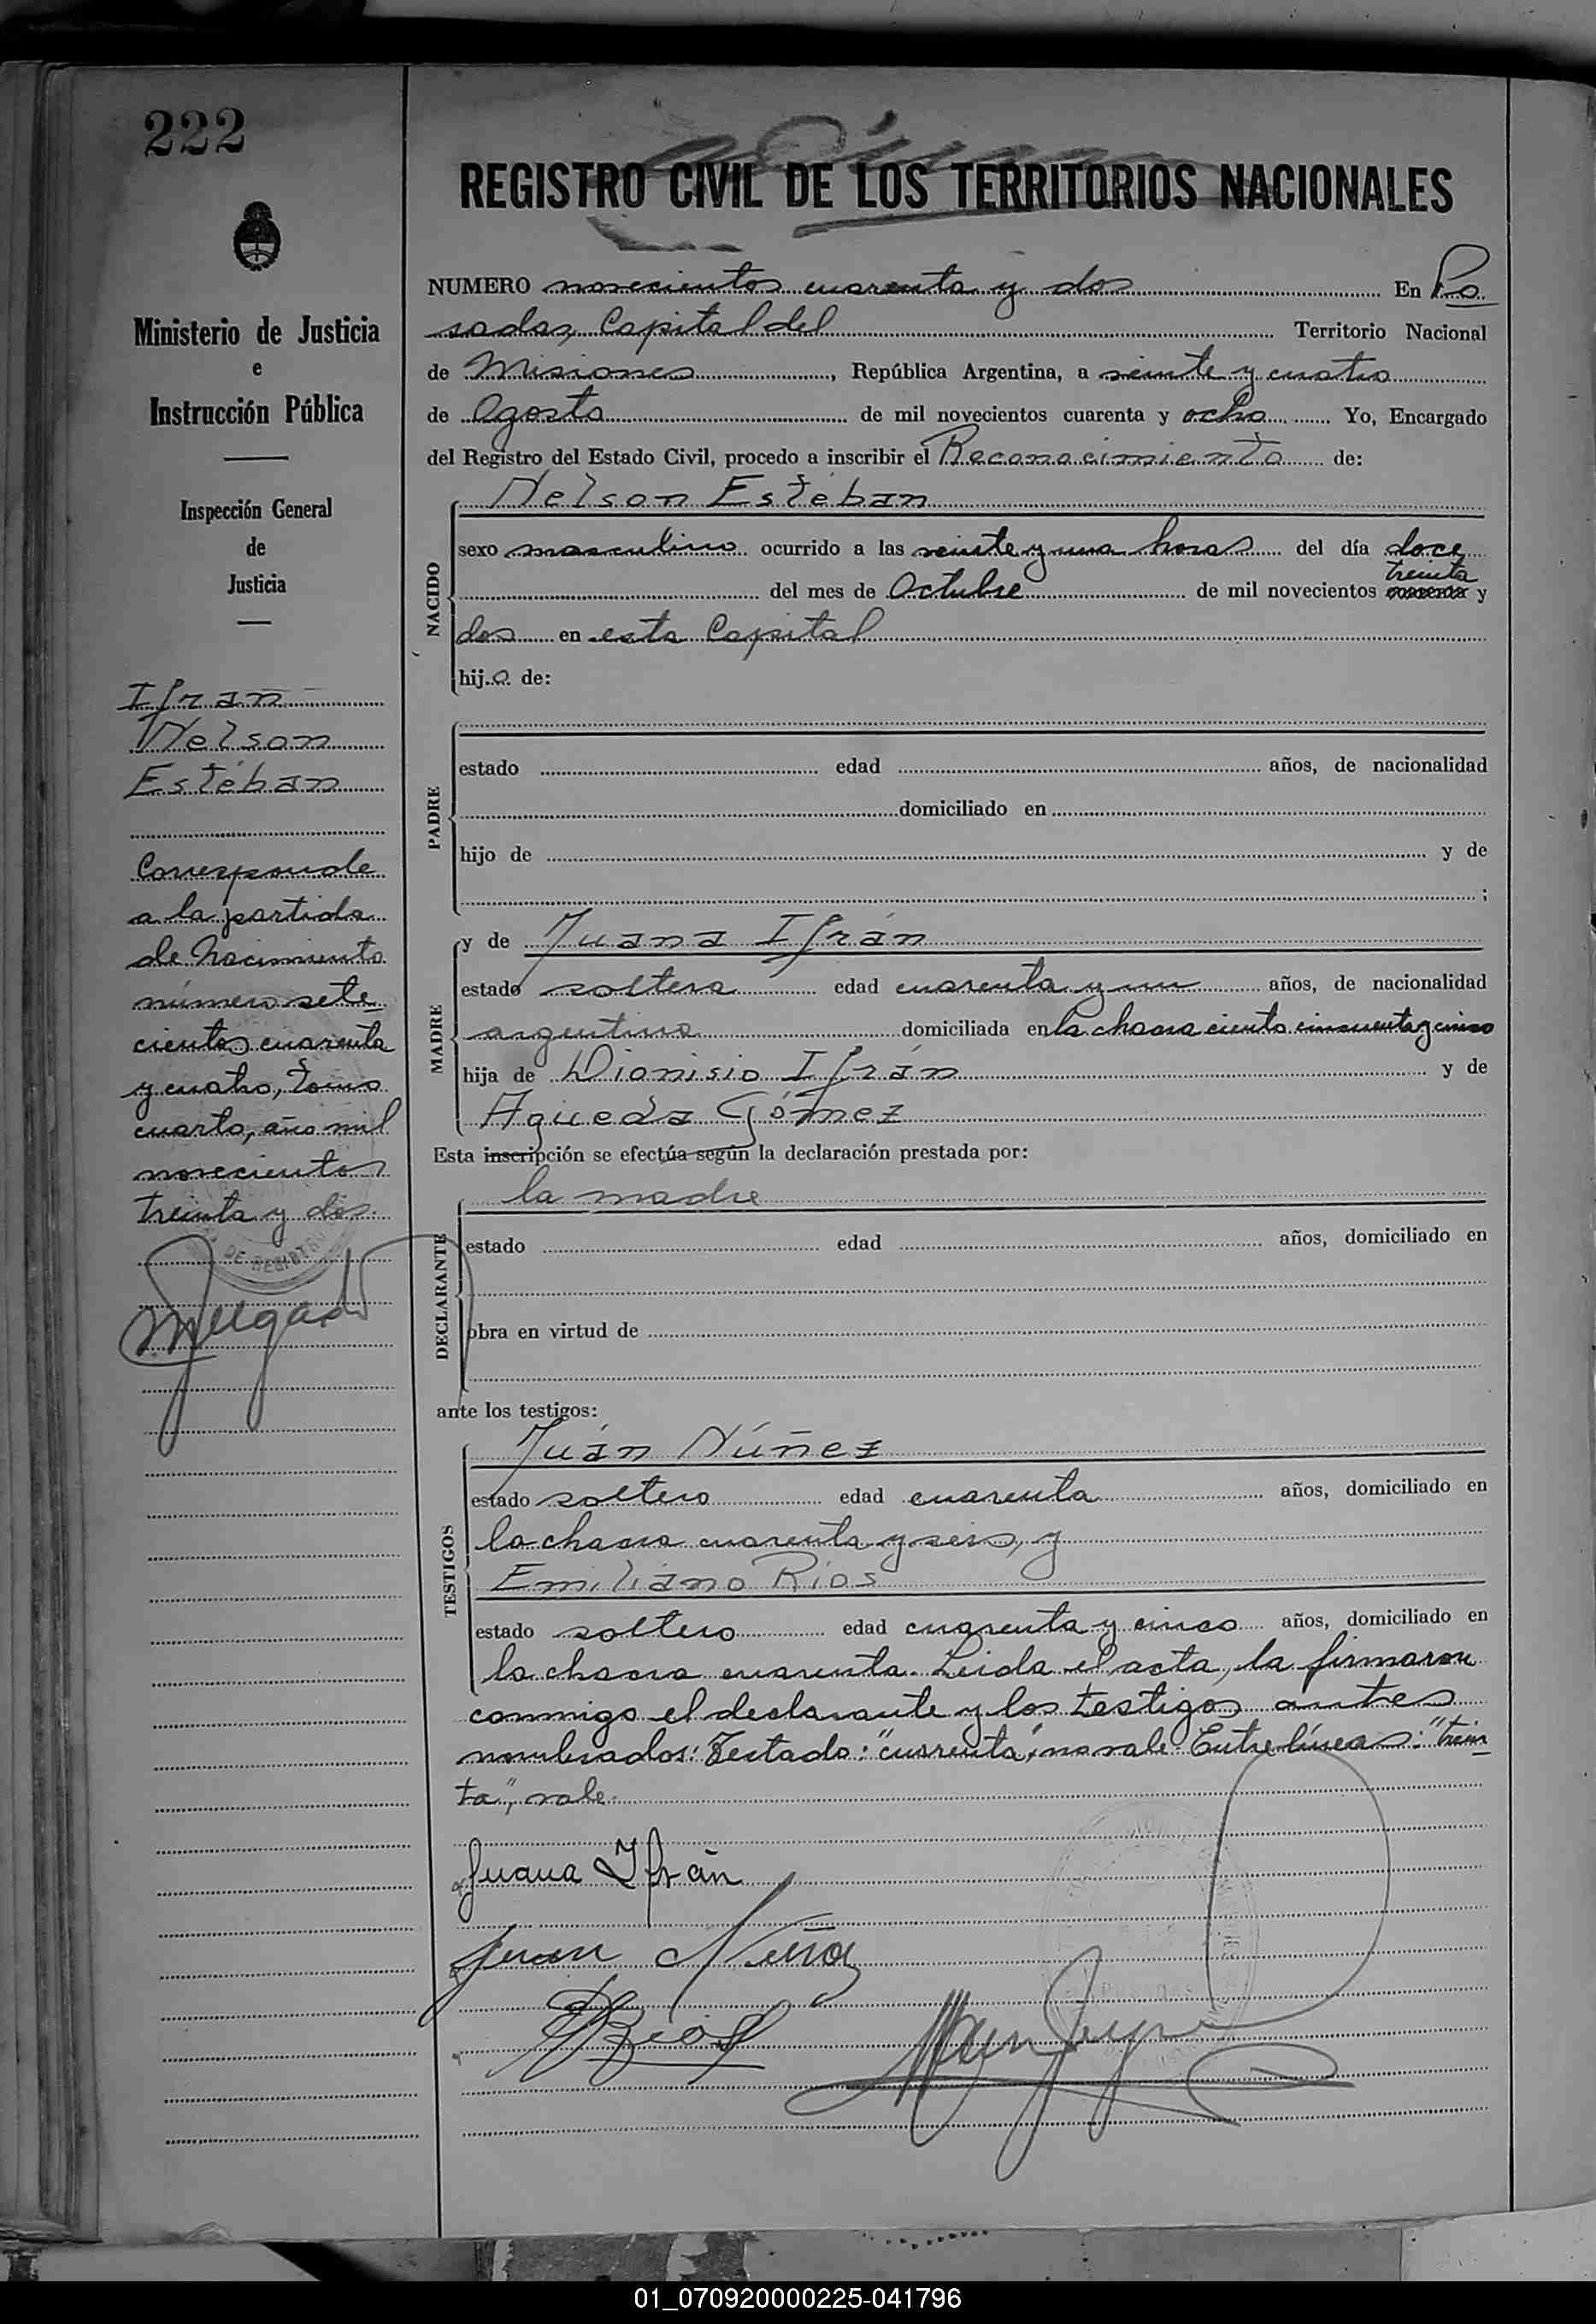 222
REGISTRO CIVIL DE LOS TERRITORIOS NACIONALES
Ministerio de Justicia
e
Instrucción Pública
Inspección General
de
Justicia
Ifrán
Nelson
Esteban
Corresponde
a la partida
de Nacimiento
número sete
cientos cuarenta
y cuatro, tomo
cuarto, año mil
novecientos
treinta y dos.
NUMERO novecientos cuarenta y dos En Po
sadas, Capital del Territorio Nacional
de Misiones, República Argentina, a veinte y cuatro
de Agosto de mil novecientos cuarenta y ocho Yo, Encargado
del Registro del Estado Civil, procedo a inscribir el Reconocimiento de:
NACIDO
Nelson Esteban
sexo masculino ocurrido a las veinte y una horas del día doce
treinta
del mes de Octubre de mil novecientos cuarenta y
dos en esta Capital
hijo de:
PADRE
estado edad años, de nacionalidad
domiciliado en
hijo de y de
;
MADRE
y de Juana Ifrán
estado soltera edad cuarenta y un años, de nacionalidad
argentina domiciliada en la chacra ciento cincuenta y cinco
hija de Dionisio Ifrán y de
Agueda Gómez
Esta inscripción se efectúa según la declaración prestada por:
DECLARANTE
la madre
estado edad años, domiciliado en
obra en virtud de
ante los testigos:
TESTIGOS
Juán Núñez
estado soltero edad cuarenta años, domiciliado en
la chacra cuarenta y seis, y
Emiliano Ríos
estado soltero edad cuarenta y cinco años, domiciliado en
la chacra cuarenta. Leida el acta, la firmaron
conmigo el declarante y los testigos antes
nombrados: Testado: "cuarenta", no vale. Entre líneas: "trein
ta", vale.
Juana Ifrán
Juan Núñez
E Rios
DE REGISTRO
01_070920000225-041796